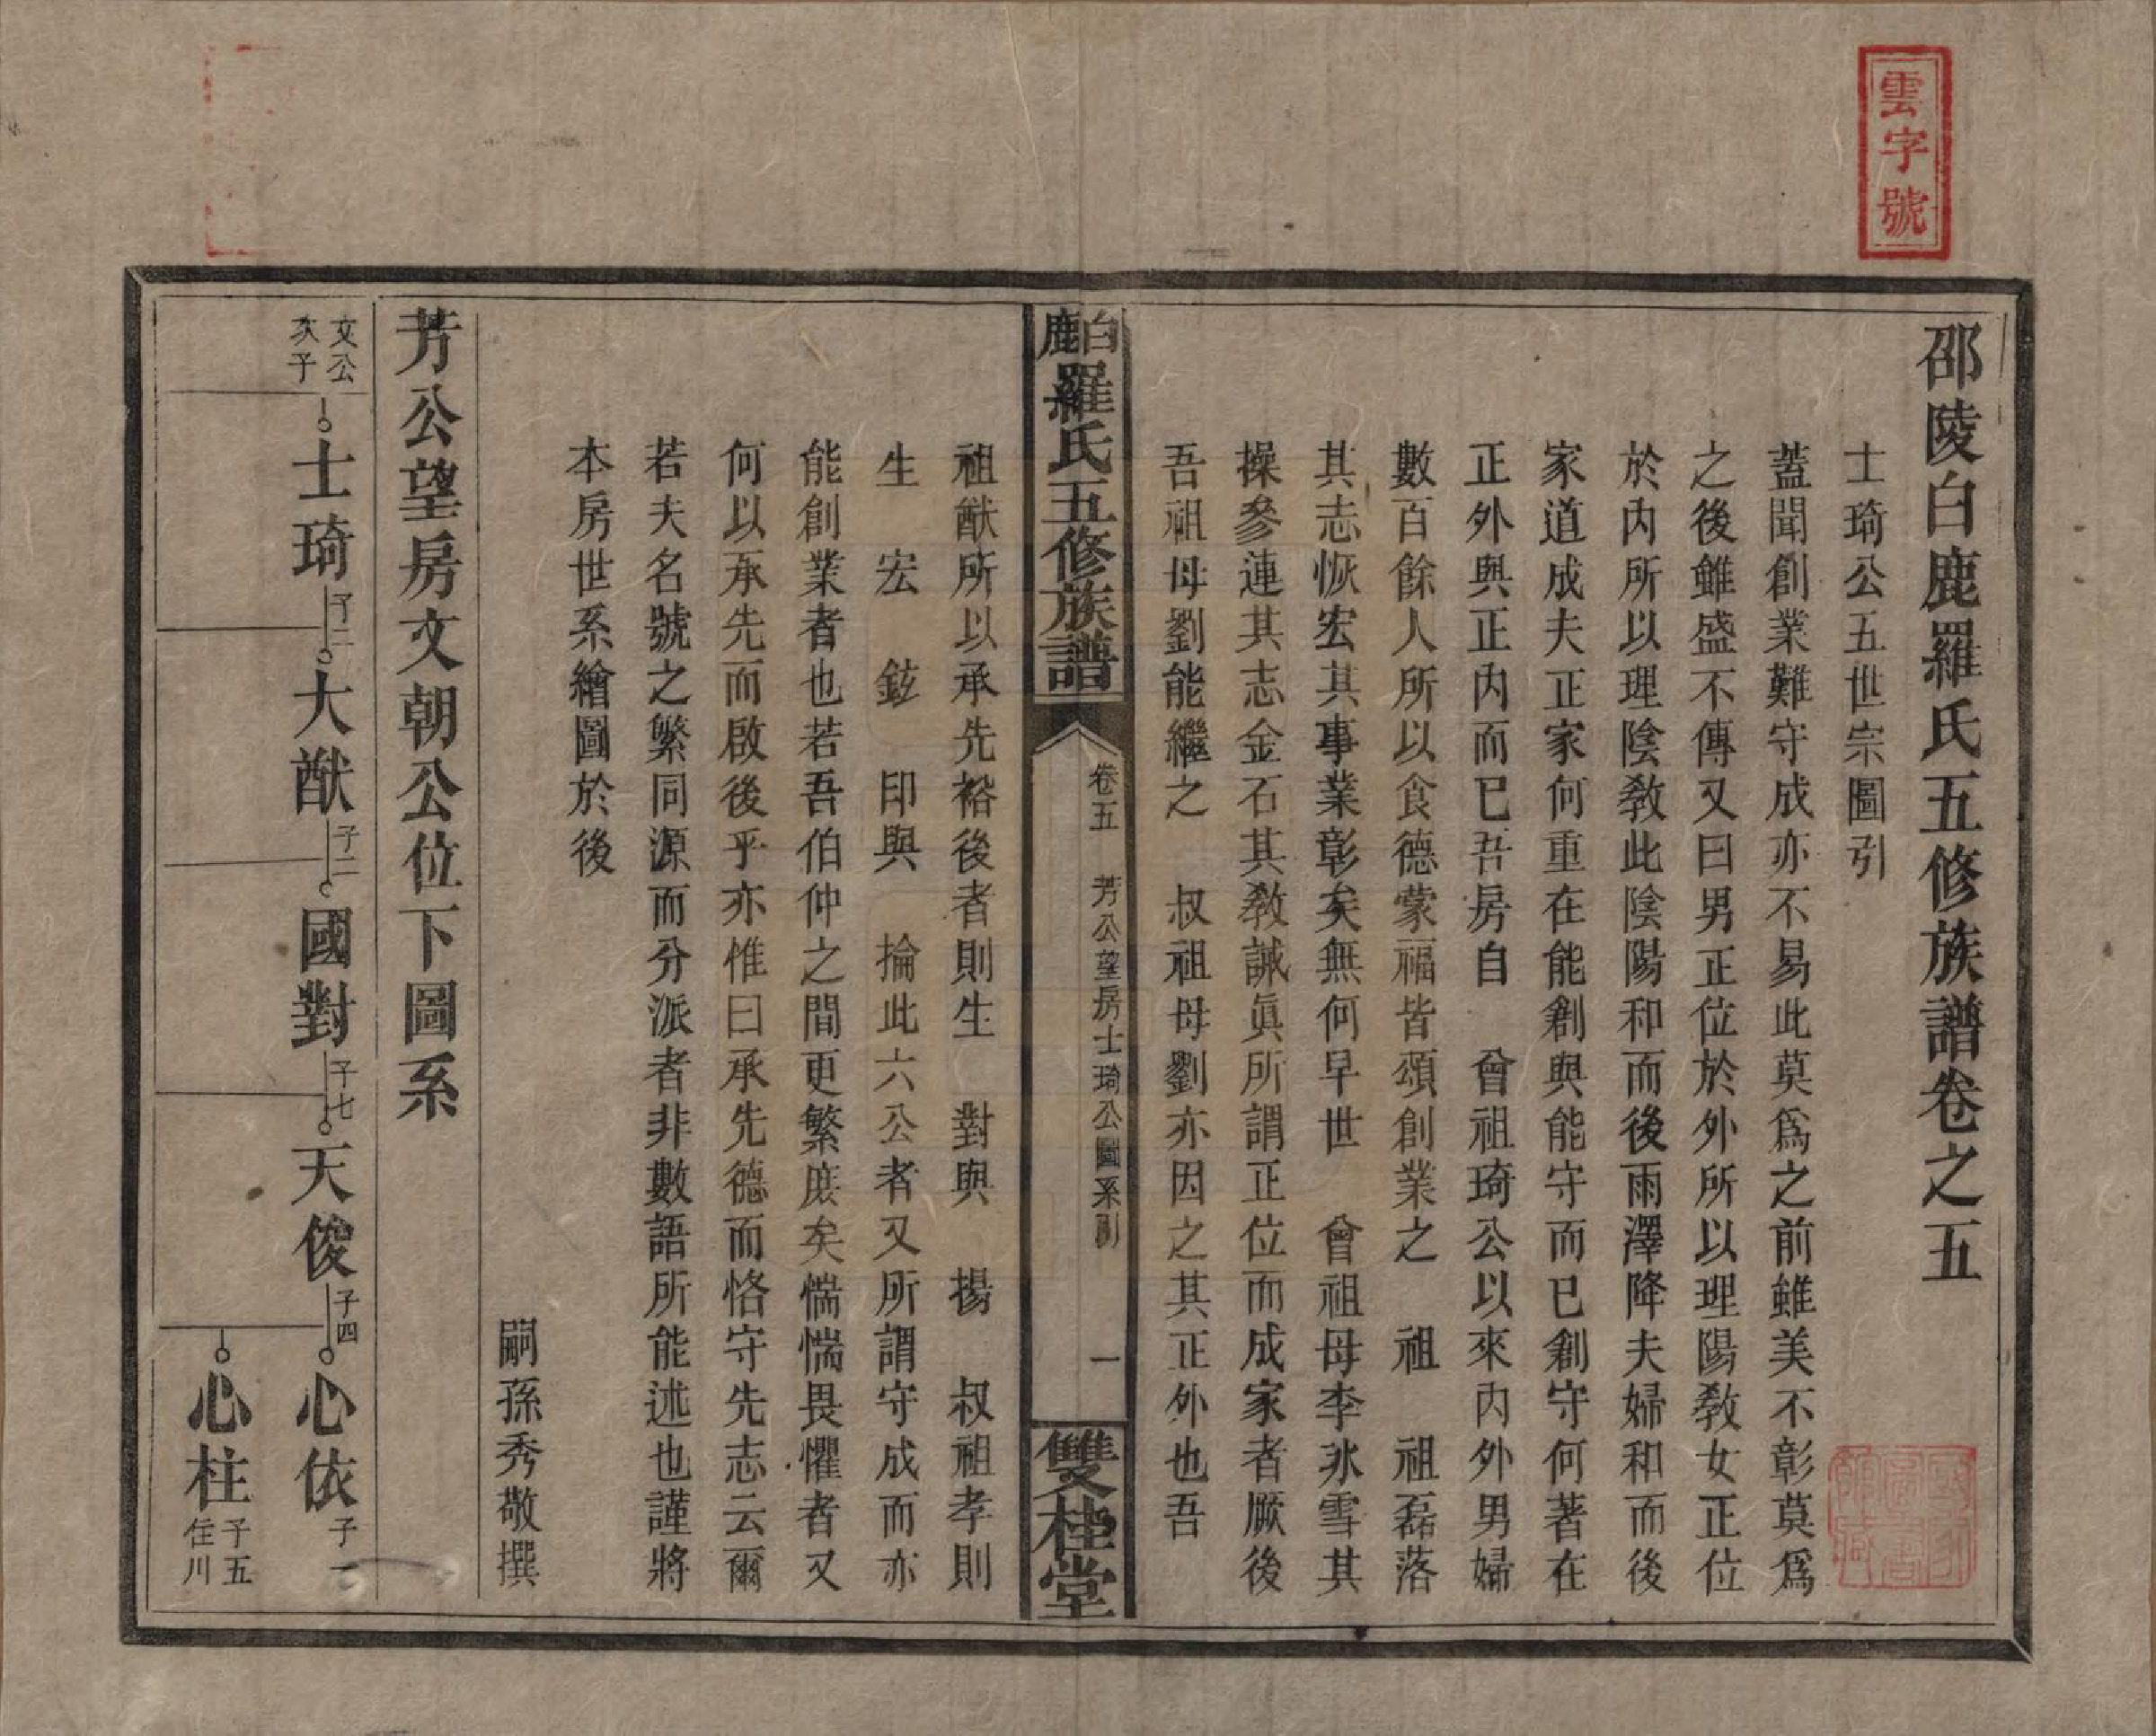 雲字號
邵陵白鹿羅氏五修族譜卷之五
士琦公五世宗圖引
蓋聞創業難守成亦不易此莫爲之前雖美不彰莫爲
之後雖盛不傳又曰男正位於外所以理陽敎女正位
於內所以理陰敎此陰陽和而後雨澤降夫婦和而後
家道成夫正家何重在能創與能守而已創守何著在
正外與正內而已吾房自　曾祖琦公以來內外男婦
數百餘人所以食德蒙福皆頌創業之　祖　祖磊落
其志恢宏其事業彰矣無何早世　曾祖母李氷雪其
操參連其志金石其敎誠眞所謂正位而成家者厥後
吾祖母劉能繼之　叔祖母劉亦因之其正外也吾
白鹿羅氏五修族譜
卷五　芳公望房士琦公圖系引
一
雙桂堂
祖猷所以承先裕後者則生　對與　揚　叔祖孝則
生　宏　鉉　印與　掄此六公者又所謂守成而亦
能創業者也若吾伯仲之間更繁庶矣惴惴畏懼者又
何以承先而啟後乎亦惟曰承先德而恪守先志云爾
若夫名號之繁同源而分派者非數語所能述也謹將
本房世系繪圖於後
嗣孫秀敬撰
芳公望房文朝公位下圖系
文公
次子
士琦
子二
大猷
子二
國對
子七
天俊
子四
心依
子一
心柱
子五
住川